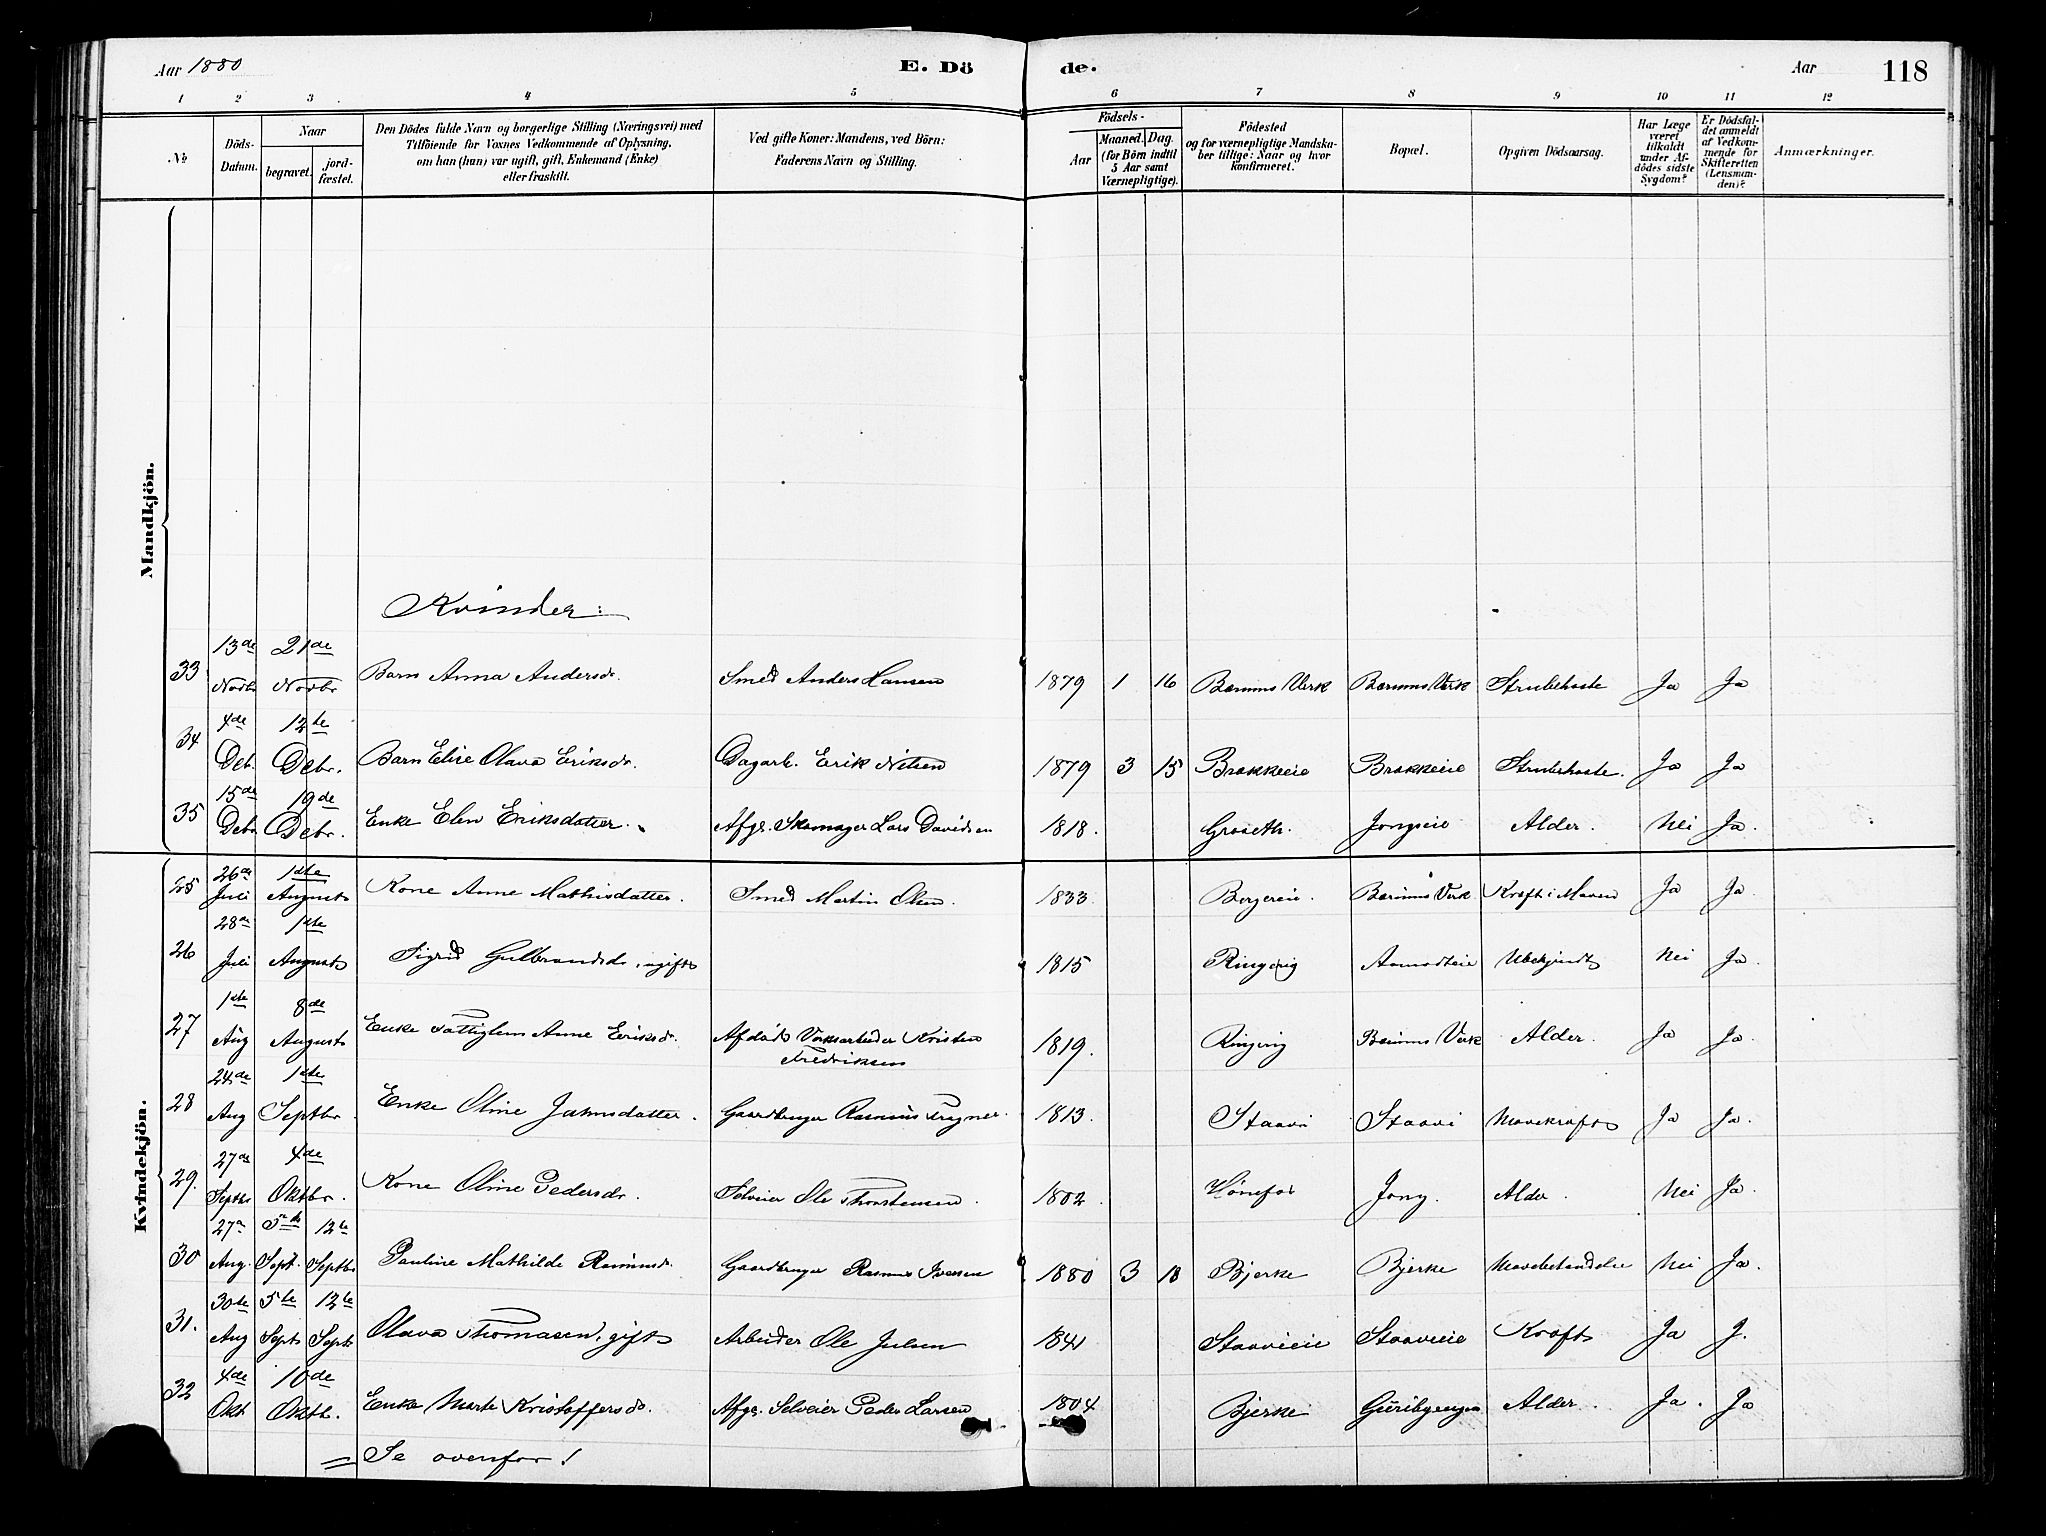 Aar 1880 E. Dö de. Aar 118
1 2 3 4 5 6 7 8 9 10 11 12
No Döds-Datum. Naar begravet. jord-fæstet. Den Dödes fulde Navn og borgerlige Stilling (Næringsvei) med Tilföiende for Voxnes Vedkommende af Oplysning, om han (hun) var ugift, gift, Enkemand (Enke) eller fraskilt. Ved gifte Koner: Mandens, ved Börn: Faderens Navn og Stilling. Födsels- Aar Maaned. Dag. (for Börn indtil 5 Aar samt Værnepligtige). Födested og for værnepligtige Mandska-ber tillige: Naar og hvor konfirmeret. Bopæl. Opgiven Dödsaarsag. Har Læge været tilkaldt under Af-dödes sidste Sygdom? Er Dödsfal-det anmeldt af Vedkom-mende for Skifteretten (Lensman-den)? Anmærkninger.
Mandkjön.
Kvinder:
33 13de Novbr 21de Novbr Barn Anna Andersdr. Smed Anders Hansen 1879 1 16 Bærums Værk Bærums Værk Strubehoste Ja Ja
34 4de Deb. 12te Debr. Barn Elise Olava Eriksdr. Dagarb. Erik Nilsen 1879 3 15 Brakkeeie Brakkeeie Strubehoste. Ja Ja
35 15de Debr 19de Debr. Enke Elen Eriksdatter. Afgr. Skomager Lars Davidsen 1818. Groseth. Jongseie Alder. Nei Ja.
Kvindekjön.
25 26de Juli 1ste August Kone Anne Mathisdatter. Smed Martin Olsen. 1833. Borgereie. Bærums Værk Kræft i Maven Ja Ja.
26 28de Juli 1ste August Sigrid Gulbrandsdr. ugift 1815 Ringerig Aamodteie Ubekjendt Nei Ja.
27 1ste Aug 8de August Enke Fattiglem Anne Eriksdr. Afdöd Værksarbeider Kristen Fredriksen 1819. Ringerig Bærums Værk Alder. Ja Ja.
28 24de Aug 1ste Septbr. Enke Oline Jahnsdatter. Gaardbruger Rasmus Tregner. 1813. Staavi Staavi Mavekræft Ja Ja.
29. 27de Septbr 4de Oktbr. Kone Oline Pedersdr. Selveier Ole Thorstensen. 1802. Hönefos Jong. Alder Nei Ja.
30 27de Aug. 5te Sept. 12te Septbr Pauline Mathilde Rasmusdr. Gaardbruger Rasmus Iversen 1880 3 18 Bjerke Bjerke Mavebetændelse Nei Ja.
31. 30te Aug 5te Sept 12te Sept Olava Thomasen, gift Arbeider Ole Julsen 1841 Staavieie Staavieie Kræft Ja J.
32 4de Okt. 10de Oktb. Enke Marte Kristoffersdr. Afgr. Selveier Peder Larsen 1804 Bjerke Alder. Ja. Ja
= Se ovenfor!